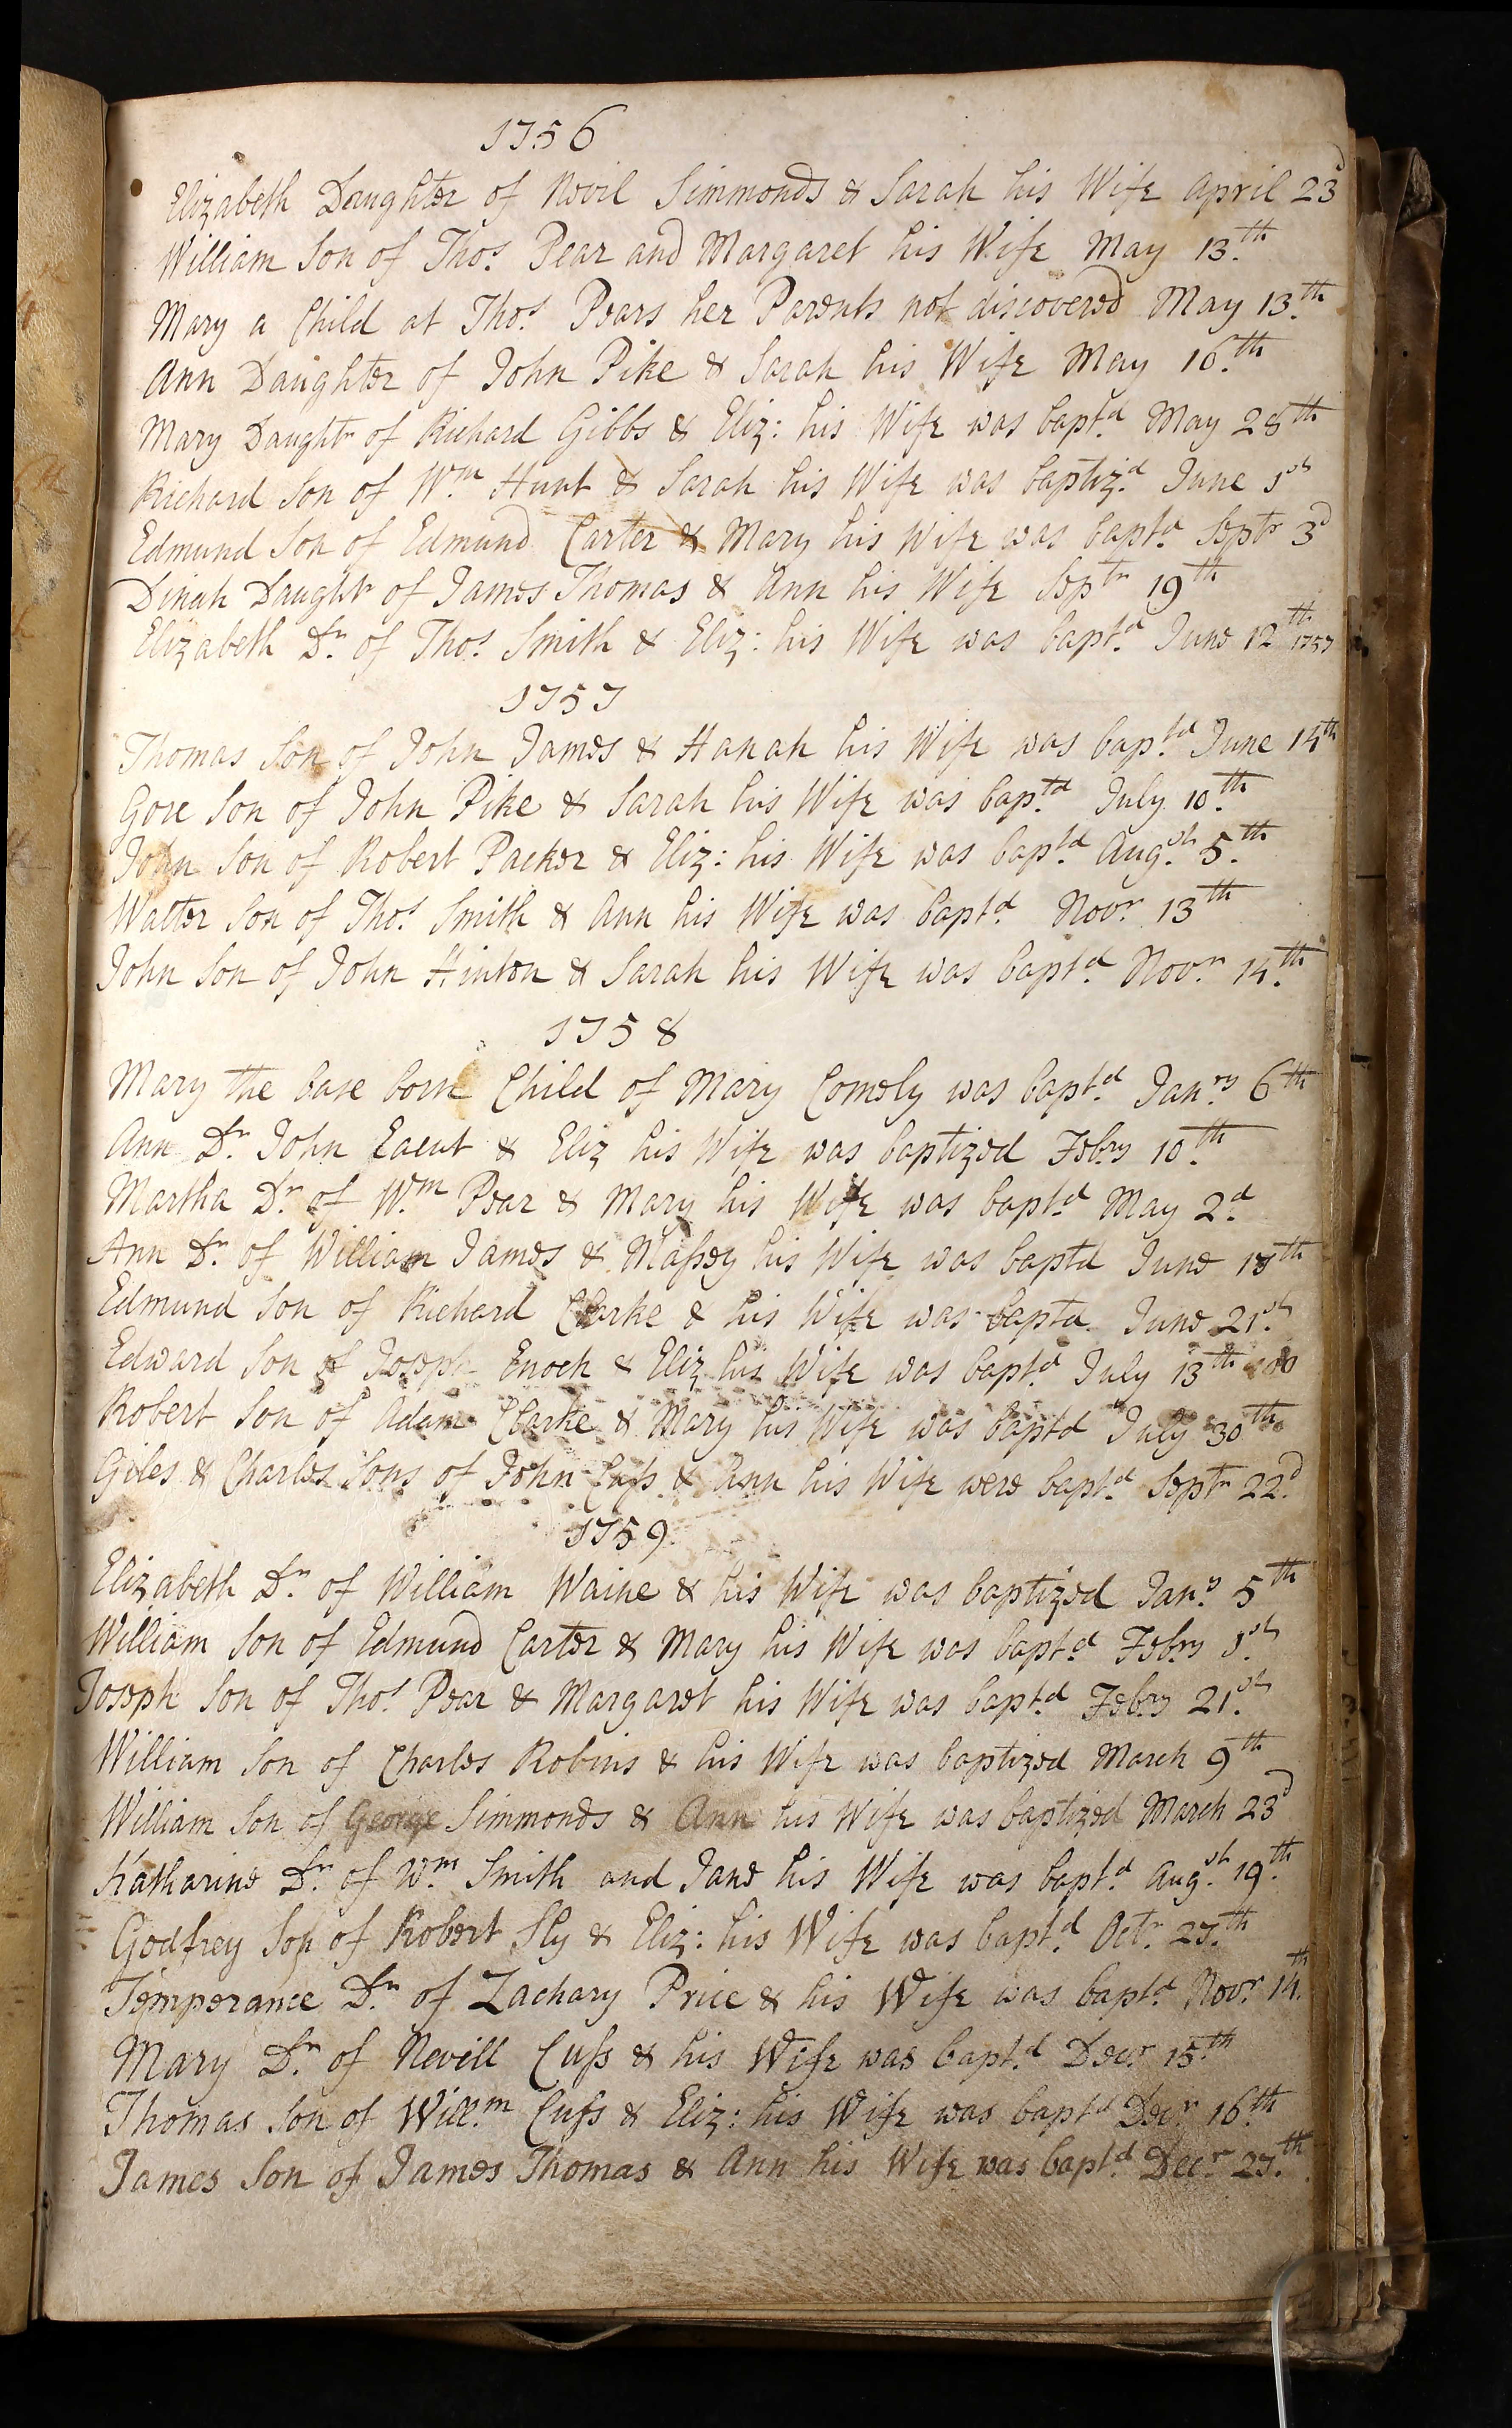 1756
Elizabeth Daughter of Novil Simmonds & Sarah his Wife April 23d
William Son of Thos. Pear and Margaret his Wife May 13.th
Mary a Child at Thos. Pears her Parents not discovered May 13.th
Ann Daughter of John Pike & Sarah his Wife May 16.th
Mary Daughtr of Richard Gibbs & Eliz: his Wife was bapt.d May 28th
Richard Son of Wm. Hunt & Sarah his Wife was baptiz.d June 1st
Edmund Son of Edmund Carter & Mary his Wife was bapt.d Septr 3d
Dinah Daughtr of James Thomas & Ann his Wife Septr 19th
Elizabeth Dr. of Thos. Smith & Eliz: his Wife was bapt.d June 12th 1757
1757
Thomas Son of John James & Hanah his Wife was bap.td June 14th
Gore Son of John Pike & Sarah his Wife was bap.td July 10.th
John Son of Robert Packer & Eliz: his Wife was bap.td Aug.st 5.th
Walter Son of Thos. Smith & Ann his Wife was bapt.d Novr. 13th
John Son of John Hinton & Sarah his Wife was bapt.d Novr. 14.th
1758
Mary the base born Child of Mary Comely was bapt.d Jan.ry 6th
Ann Dr. John & Eliz his Wife was baptized Feb.ry 10.th
Martha Dr. of Wm. Pear & Mary his Wife was bapt.d May 2.d
Ann Dr. of William James & Massey his Wife was baptd June 18th
Edmund Son of Richard Clarke & his Wife was baptd June 21st
Edward Son of Joseph Enoch & Eliz his Wife was bapt.d July 13th
Robert Son of Adam Clarke & Mary his Wife was baptd July 30th
Giles & Charles Sons of John Cuss & Ann his Wife were bapt.d Septr 22d
1759
Elizabeth Dr. of William Waine & his Wife was baptized Jan.y 5th
William Son of Edmund Carter & Mary his Wife was bapt.d Feb.ry 1st
Joseph Son of Thos. Pear & Margaret his Wife was bapt.d Feb.ry 21.st
William Son of Charles Robins & his Wife was baptized March 9th
William Son of George Simmonds & Ann his Wife was baptized March 23d
Katharine Dr. of Wm. Smith and Jane his Wife was bapt.d Aug.st 19.th
Godfrey Son of Robert Sly & Eliz: his Wife was bapt.d Octr. 27.th
Temperance Dr. of Zachary Price & his Wife was bapt.d Novr. 14.th
Mary Dr. of Nevill Cuss & his Wife was bapt.d Decr. 15.th
Thomas Son of Will.m Cuss & Eliz: his Wife was baptd Decr. 16.th
James Son of James Thomas & Ann his Wife was bapt.d Decr. 27.th